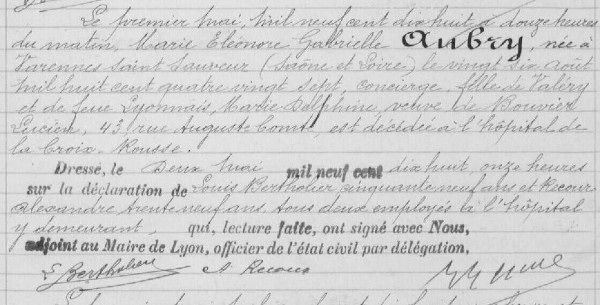 Le premier mai, mil neuf cent dix huit à douze heures
du matin, Marie Eléonore Gabrielle Aubry, née à
Varennes Saint Sauveur (Saône et Loire) le vingt six août
mil huit cent quatre vingt sept, concierge, fille de Valéry
et de feue Lyonnais, Marie Delphine, veuve de Bouvier
Lucien, 43, rue Auguste Comte, est décédée à l'hôpital de
la Croix-Rousse.
Dressé, le Deux mai mil neuf cent dix huit, onze heures
sur la déclaration de Louis Bertholier cinquante neuf ans et Recour
Alexandre trente neuf ans tous deux employés à l'hôpital
y demeurant, qui, lecture faite, ont signé avec Nous,
adjoint au Maire de Lyon, officier de l'état civil par délégation,
L. Bertholier A. Recour